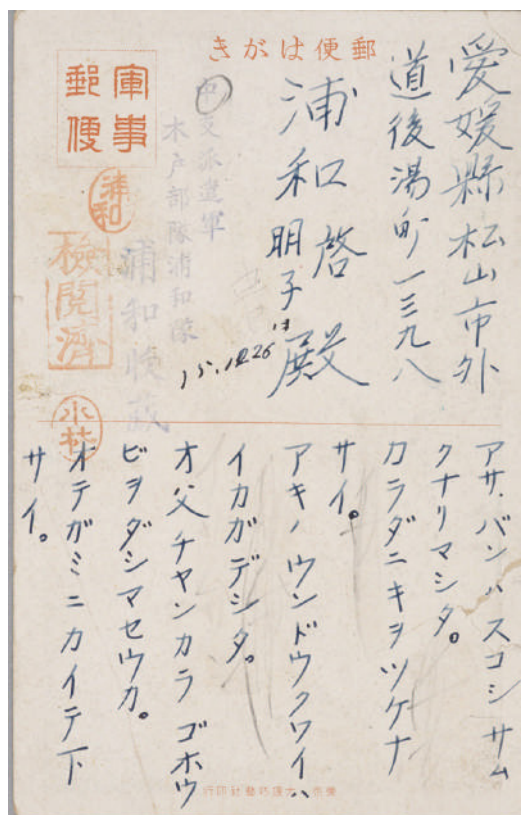 郵便はがき
軍事
郵便
愛媛縣松山市外
道後湯町一三九八
浦和啓
明子殿
中支派遣軍
木戸部隊浦和隊
浦和
検閲濟
小林
アサ、バンハスコシサム
クナリマシタ。
カラダニキヲツケナ
サイ。
アキノウンドウクワイハ
イカガデシタ。
オ父チヤンカラゴホウ
ビヲダシマセウカ。
オテガミニカイテ下
サイ。